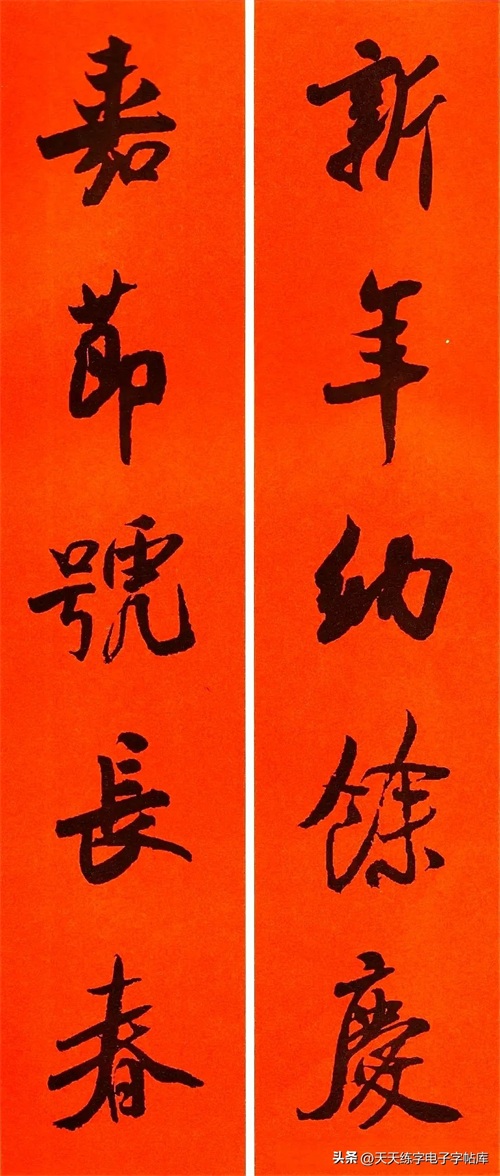 新年納餘慶
嘉節號長春
头条 @天天练字电子字帖库